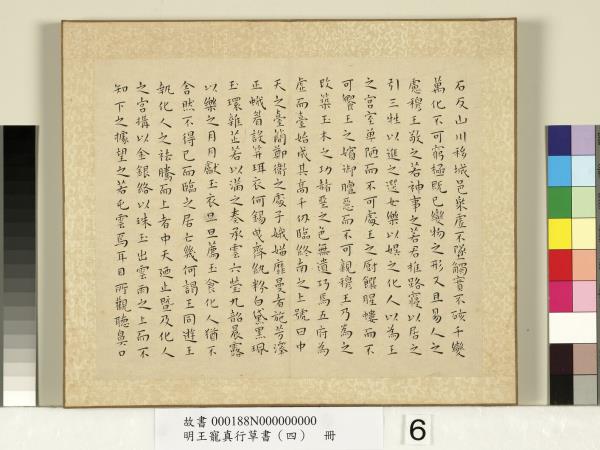 石反山川移城邑乘虛不墜觸實不硋千變
萬化不可窮極既已變物之形又且易人之
慮穆王敬之若神事之若君推路寢以居之
引三牲以進之選女樂以娛之化人以為王
之宮室卑陋而不可處王之廚饌腥螻而不
可饗王之嬪御膻惡而不可親穆王乃為之
改築土木之功赭堊之色無遺巧焉五府為
虛而臺始成其高千仞臨終南之上號曰中
天之臺簡鄭衛之處子娥媌靡曼者施芳澤
正蛾眉設笄珥衣阿錫曳齊紈粉白黛黑珮
玉環雜芷若以滿之奏承雲六瑩九韶晨露
以樂之月月獻玉衣旦旦薦玉食化人猶不
舍然不得已而臨之居亡幾何謁王同遊王
執化人之袪騰而上者中天迺止暨及化人
之宮構以金銀絡以珠玉出雲雨之上而不
知下之據望之若屯雲焉耳目所觀聽鼻口
故書 000188N000000000
明王寵真行草書（四） 冊
6